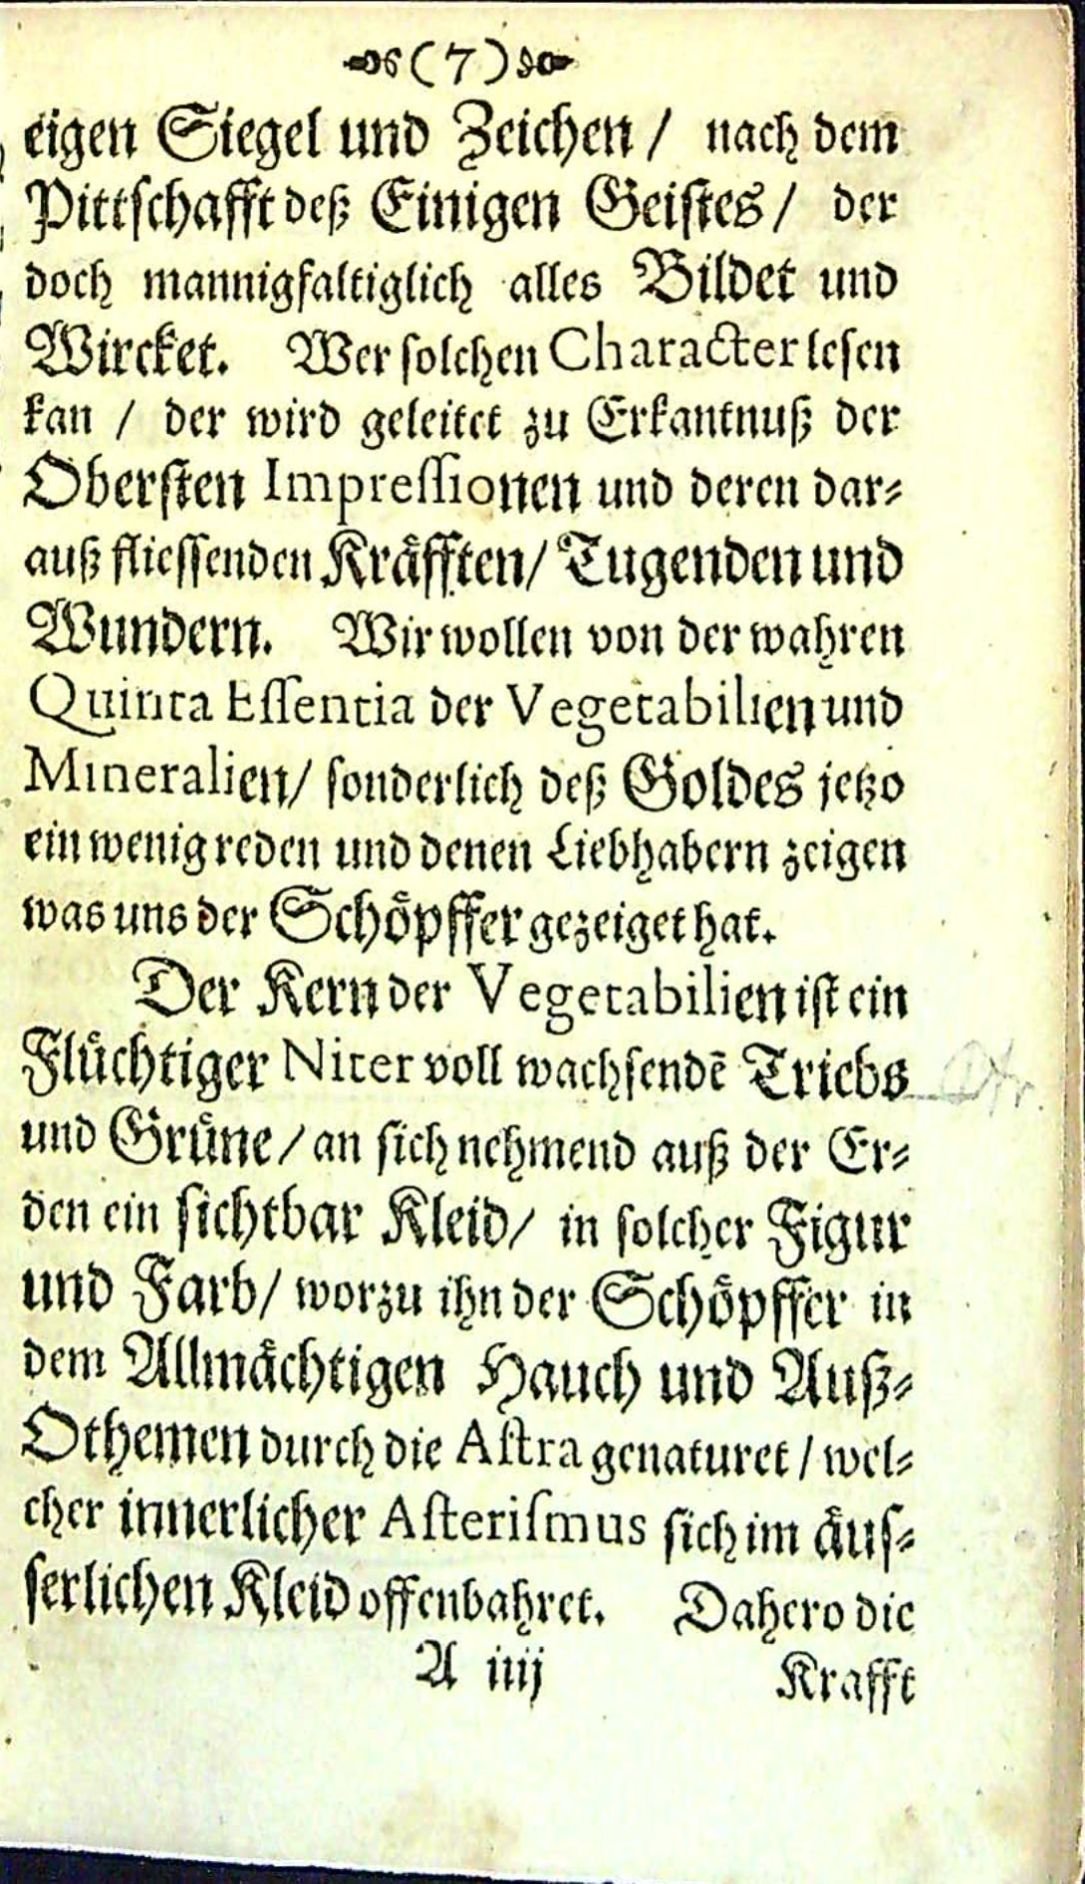 (7)
eigen Siegel und Zeichen / nach dem
Pittschafft deß Einigen Geistes / der
doch mannigfaltiglich alles Bildet und
Wircket. Wer solchen Character lesen
kan / der wird geleitet zu Erkantnuß der
Obersten Impressionen und deren dar⸗
auß fliessenden Kräfften / Tugenden und
Wundern. Wir wollen von der wahren
Quinta Essentia der Vegetabilien und
Mineralien / sonderlich deß Goldes jetzo
ein wenig reden und denen Liebhabern zeigen
was uns der Schöpffer gezeiget hat.
Der Kern der Vegetabilien ist ein
Flüchtiger Niter voll wachsendē Triebs
und Grüne / an sich nehmend auß der Er⸗
den ein sichtbar Kleid / in solcher Figur
und Farb / worzu ihn der Schöpffer in
dem Allmächtigen Hauch und Auß⸗
Othemen durch die Astra genaturet / wel⸗
cher innerlicher Asterismus sich im äus⸗
serlichen Kleid offenbahret. Dahero die
A iiij Krafft